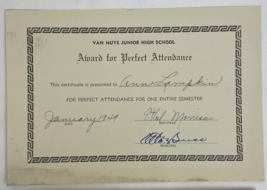 VAN NUYS JUNIOR HIGH SCHOOL
Award for Perfect Attendance
This certificate is presented to Ann Lampkin
FOR PERFECT ATTENDANCE FOR ONE ENTIRE SEMESTER
January 1949
DATE
PRINCIPAL